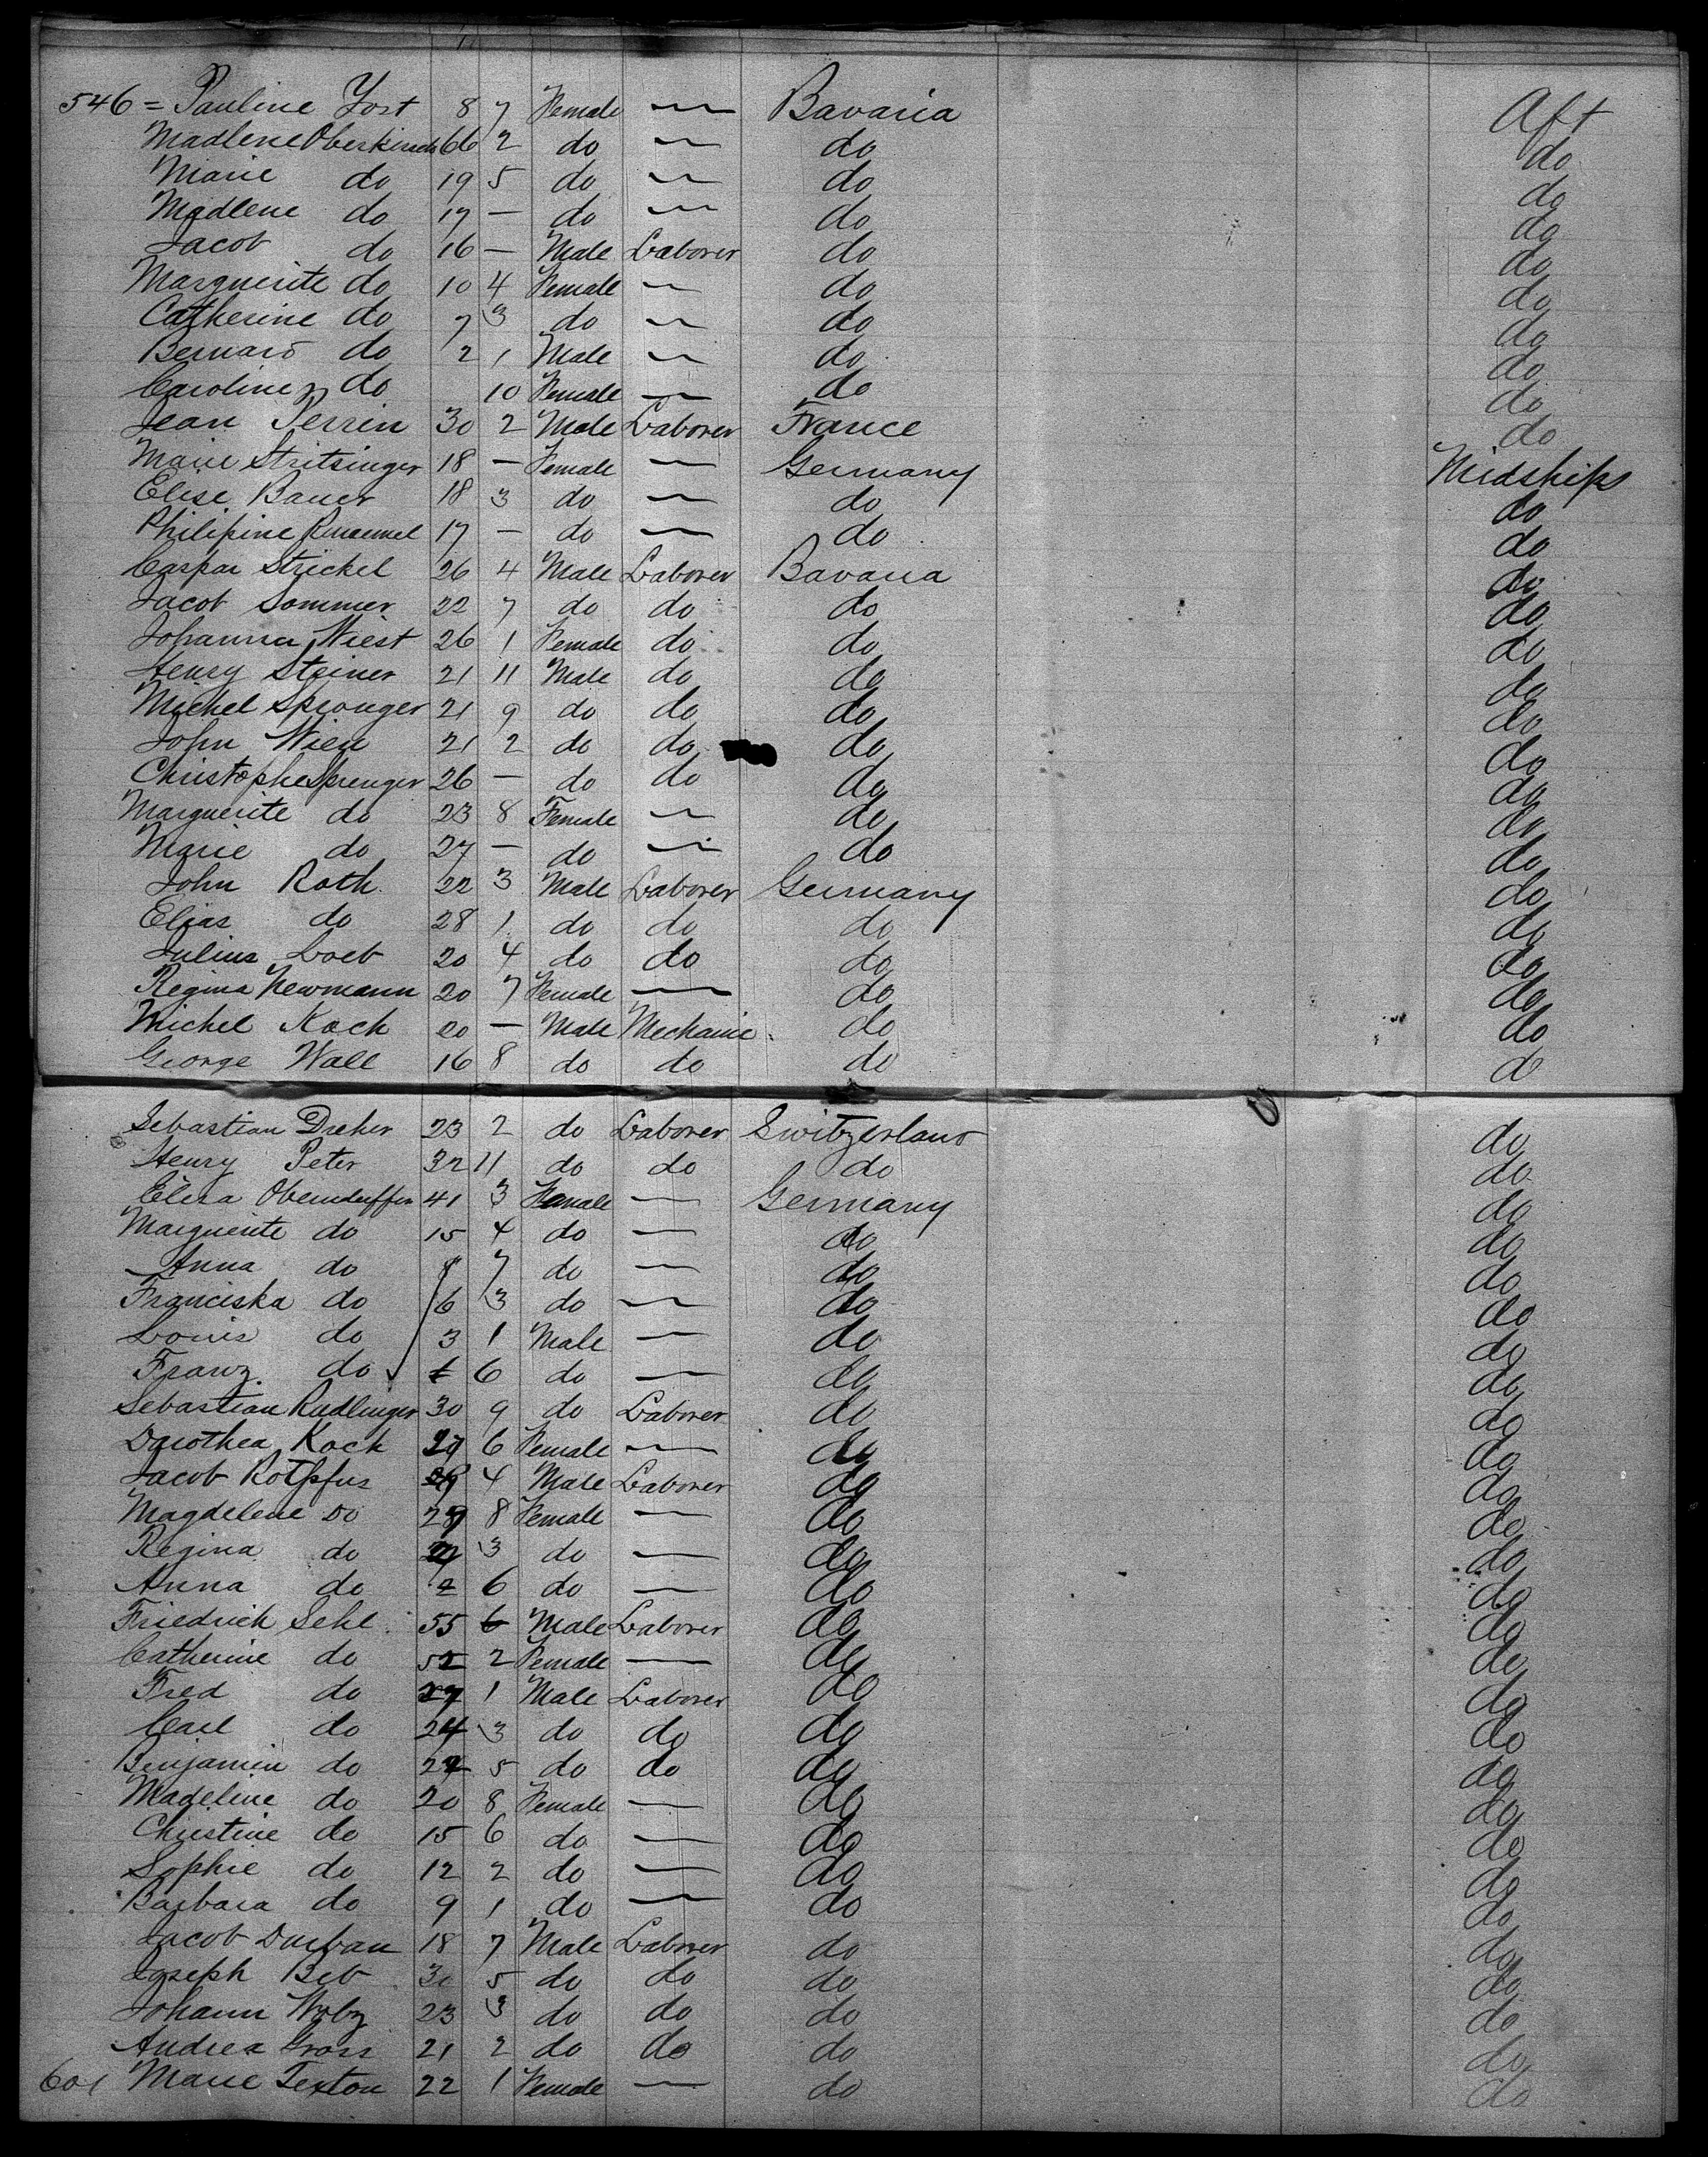 546 = Pauline Yost 8 7 Female — Bavaria Aft
Madlene Oberkirsch 66 2 do — do do
Marie do 19 5 do — do do
Madlene do 17 — do — do do
Jacob do 16 — Male Laborer do do
Marguerite do 10 4 Female — do do
Catherine do 7 3 do — do do
Bernard do 2 1 Male — do do
Caroline do 10 Female — do do
Jean Perrin 30 2 Male Laborer France do
Marie Stritsinger 18 — Female — Germany Midships
Elise Bauer 18 3 do — do do
Philipine 17 — do — do do
Caspar Strickel 26 4 Male Laborer Bavaria do
Jacob Sommer 22 7 do do do do
Johanna Wiest 26 1 Female do do do
Henry Steiner 21 11 Male do do do
Michel Sprouger 21 9 do do do do
John 21 2 do do do do
Christophe Sprenger 26 — do do do do
Marguerite do 23 8 Female — do do
Marie do 27 — do — do do
John Roth 22 3 Male Laborer Germany do
Elias do 28 1 do do do do
Julius Loeb 20 4 do do do do
Regina Newmann 20 7 Female — do do
Michel Koch 20 — Male Mechanic do do
George Wall 16 8 do do do d
Sebastian Dreher 23 2 do Laborer Switzerland do
Henry Peter 32 11 do do do do
Eliza 41 3 Female — Germany do
Marguerite do 15 4 do — do do
Anna do 8 7 do — do do
Franciska do 6 3 do — do do
Louis do 3 1 Male — do do
Franz do 6 do — do do
Sebastian Rudlinger 30 9 do Laborer do do
Dorothea Koch 6 Female — do do
Jacob 4 Male Laborer do do
Magdelene do 8 Female — do do
Regina do 3 do — do do
Anna do 2 6 do — do do
Friedrich Sehl 55 6 Male Laborer do do
Catherine do 52 2 Female — do do
Fred do 27 1 Male Laborer do do
Carl do 24 3 do do do do
Benjamin do 5 do do do do
Madeline do 20 8 Female — do do
Christine do 15 6 do — do do
Sophie do 12 2 do — do do
Barbara do 9 1 do — do do
Jacob Durban 18 7 Male Laborer do do
Joseph Beb 30 5 do do do do
Johann Wolz 23 3 do do do do
Andrea Gross 21 2 do do do do
601 Marie Texton 22 1 Female — do do